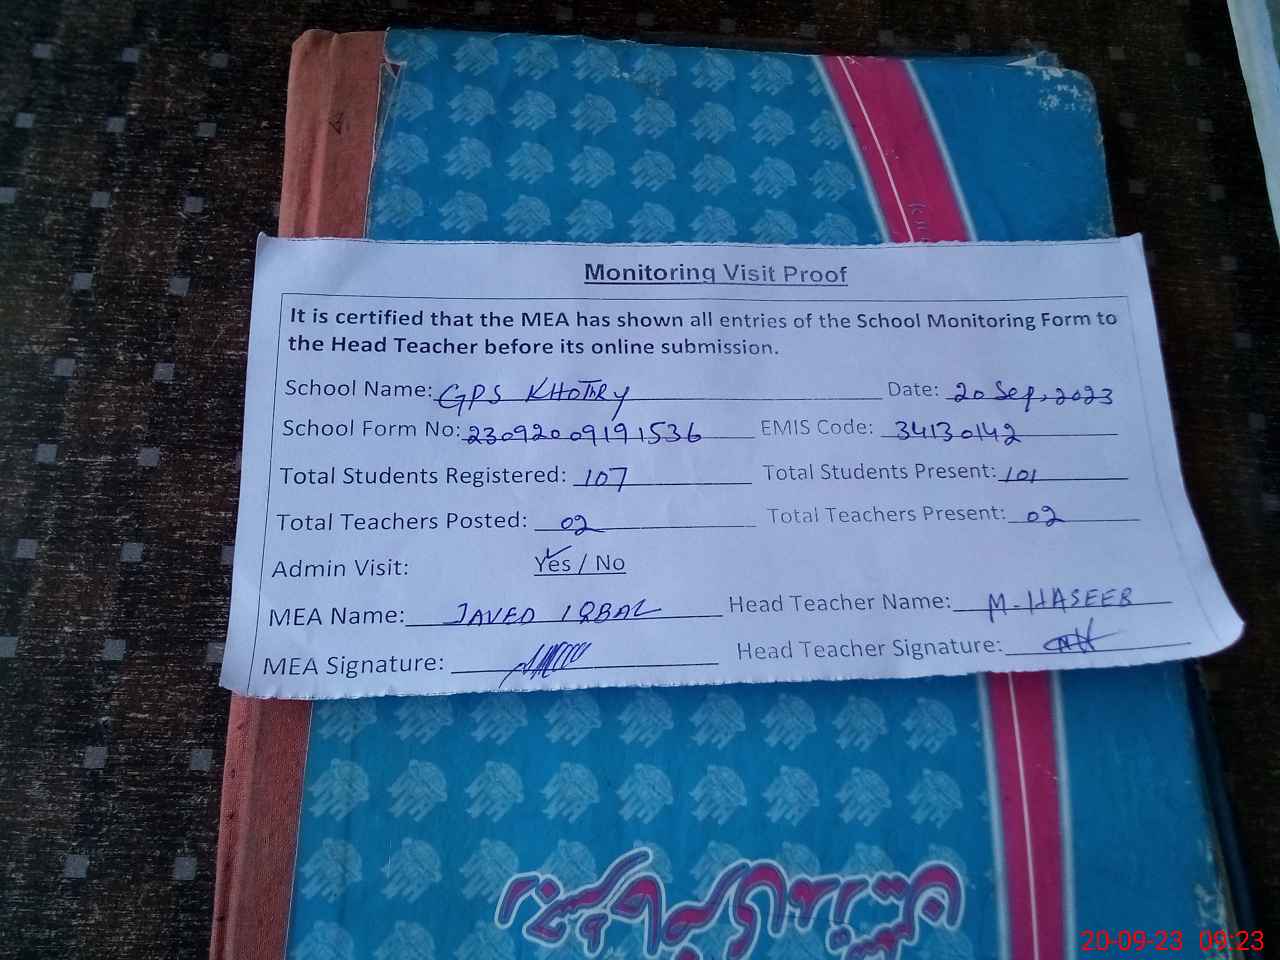 Monitoring Visit Proof
It is certified that the MEA has shown all entries of the School Monitoring Form to
the Head Teacher before its online submission.
School Name: GPS KHOTHRY Date: 20 Sep, 2023
School Form No: 23092009191536 EMIS Code: 34130142
Total Students Registered: 107 Total Students Present: 101
Total Teachers Posted: 02 Total Teachers Present: 02
Admin Visit: Yes / No
MEA Name: JAVED IQBAL Head Teacher Name: M. HASEEB
MEA Signature: Head Teacher Signature:
20-09-23 09:23